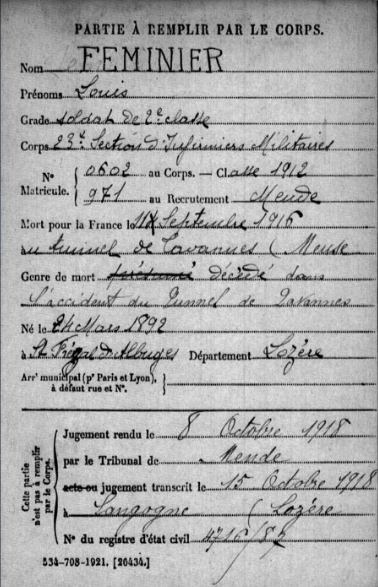 PARTIE À REMPLIR PAR LE CORPS.
Nom FEMINIER
Prénoms Louis
Grade soldat de 2e classe
Corps 23e Section d'Infirmiers Militaires
No Matricule. { 0602 au Corps. — Classe 1912
971 au Recrutement Mende
Mort pour la France le Septembre 1916
au tunnel de Tavannes (Meuse
Genre de mort décédé dans
l'accident du Tunnel de Tavannes
Né le 24 Mars 1892
à St Frézal d'Albuges Département Lozère
Arrt municipal (pr Paris et Lyon),
à défaut rue et No.
Cette partie
n'est pas à remplir
par le Corps.
Jugement rendu le 8 Octobre 1918
par le Tribunal de Mende
acte ou jugement transcrit le 15 Octobre 1918
à Langogne (Lozère
No du registre d'état civil 4716/
534-708-1921. [20434.]